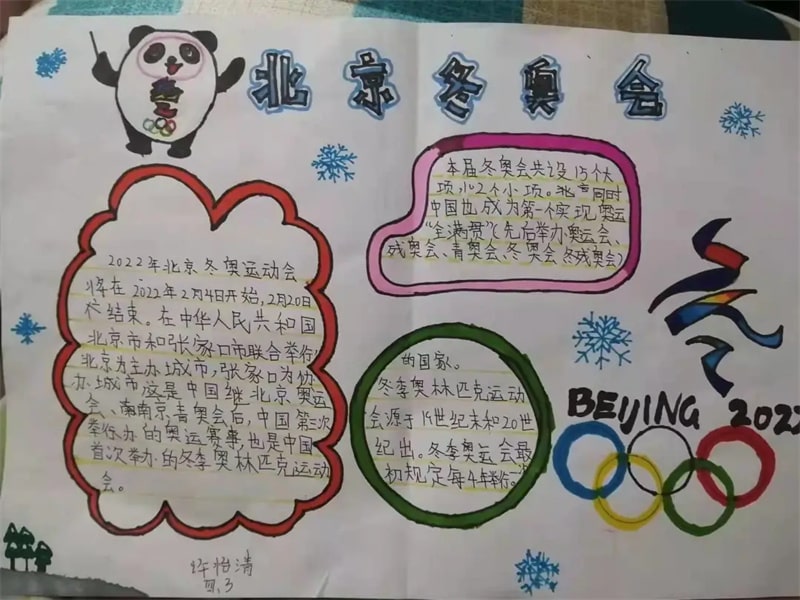 北京冬奥会
本届冬奥会共设15个大
项,102个小项。北京同时
中国也成为第一个实现奥运
"全满贯"(先后举办奥运会、
残奥会、青奥会、冬奥会、冬残奥会)
2022年北京冬奥运动会
将在2022年2月4日开始,2月20日
结束。在中华人民共和国
北京市和张家口市联合举行,
北京为主办城市,张家口为协
办城市,这是中国继北京奥运
会、南京青奥会后,中国第三次
举行办的奥运赛事,也是中国
首次举办的冬季奥林匹克运动
会。
的国家。
冬季奥林匹克运动
会源于19世纪末和20世
纪出。冬季奥运会最
初规定每4年举行一次
BEIJING 2022
许怡清
四.3